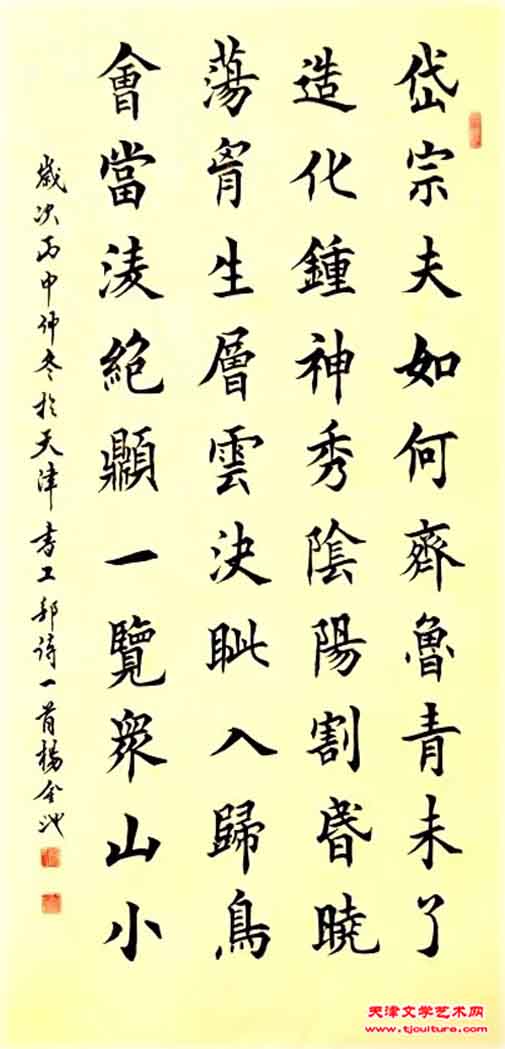 岱宗夫如何齊魯青未了
造化鍾神秀陰陽割昏曉
蕩胷生層雲決眦入歸鳥
會當淩絶顚一覽衆山小
歲次丙申仲冬於天津書工部詩一首楊金池
天津文学艺术网
www.tjculture.com